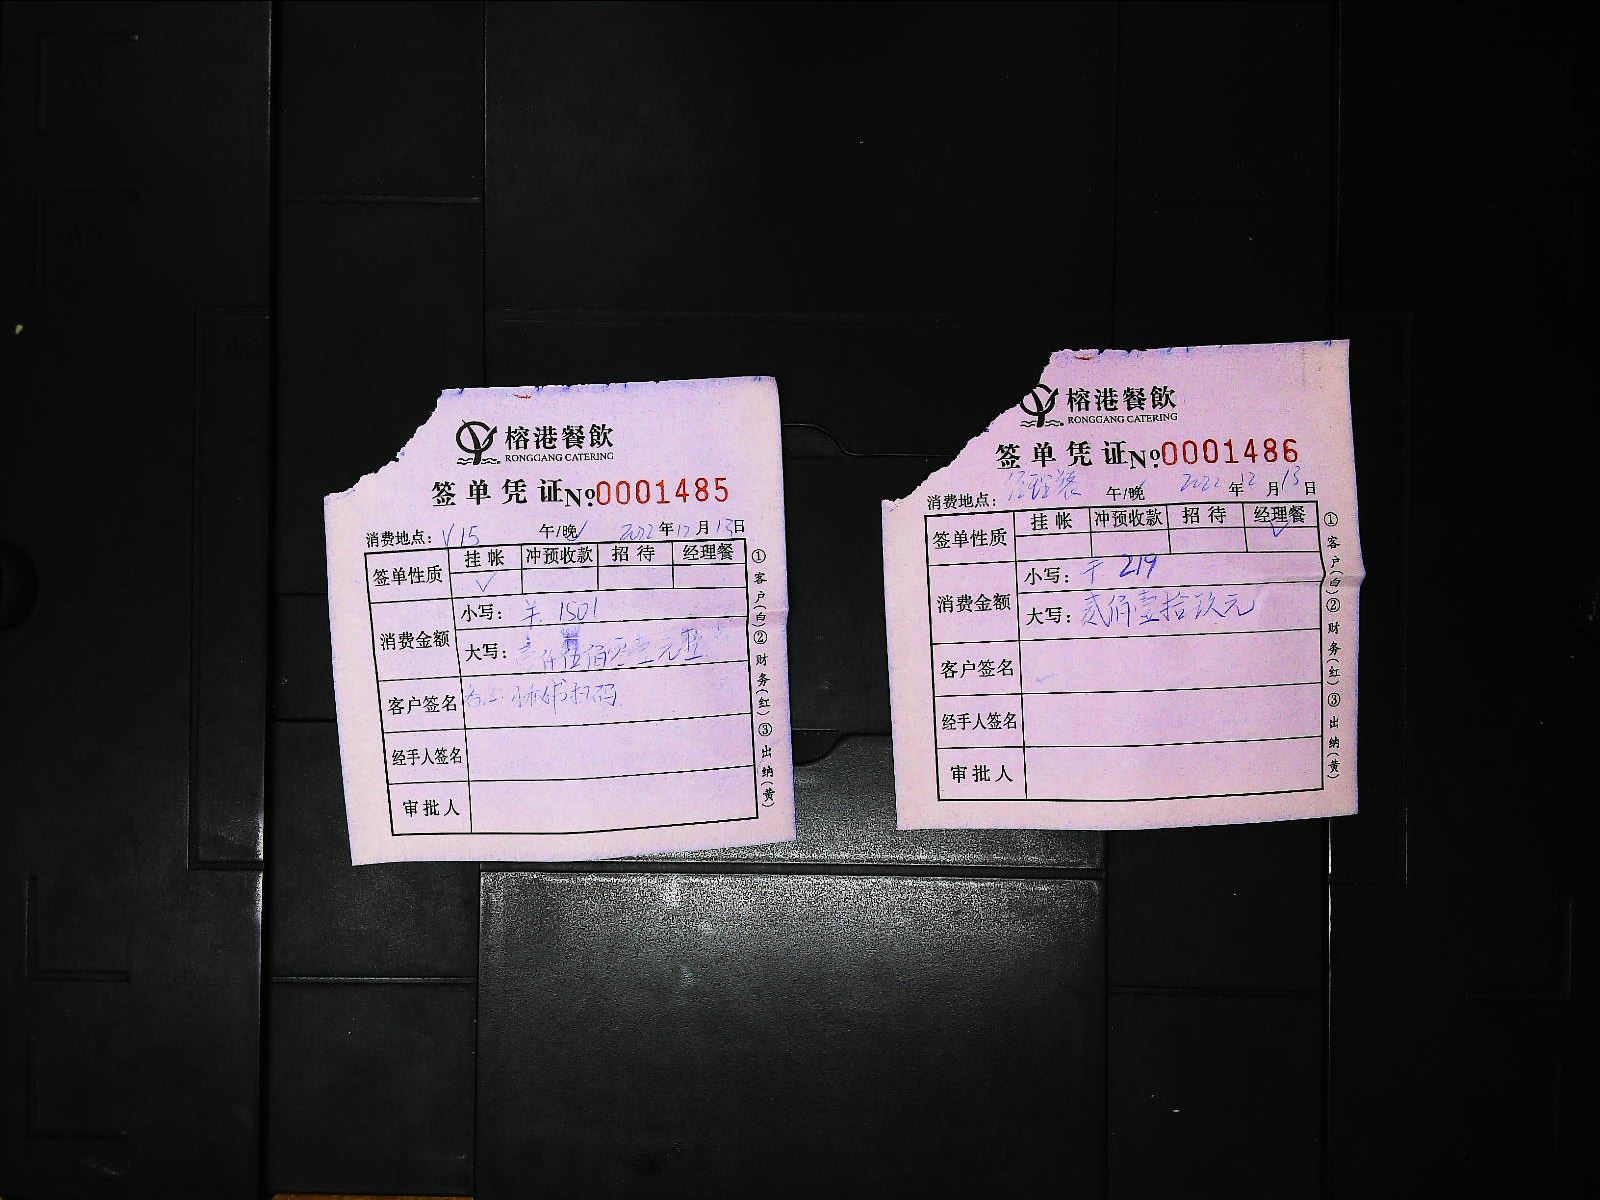 榕港餐飲
RONGGANG CATERING
签单凭证 No 0001485
消费地点: V15 午/晚 2022年12月13日
签单性质 挂帐 冲预收款 招待 经理餐
✓
消费金额 小写: 1501
大写: 壹仟伍佰零壹元整
客户签名 扫码
经手人签名
审批人
①客户(白)②财务(红)③出纳(黄)
榕港餐飲
RONGGANG CATERING
签单凭证 No 0001486
消费地点: 经理餐 午/晚 2022年12月13日
签单性质 挂帐 冲预收款 招待 经理餐
✓
消费金额 小写: 219
大写: 贰佰壹拾玖元
客户签名
经手人签名
审批人
①客户(白)②财务(红)③出纳(黄)